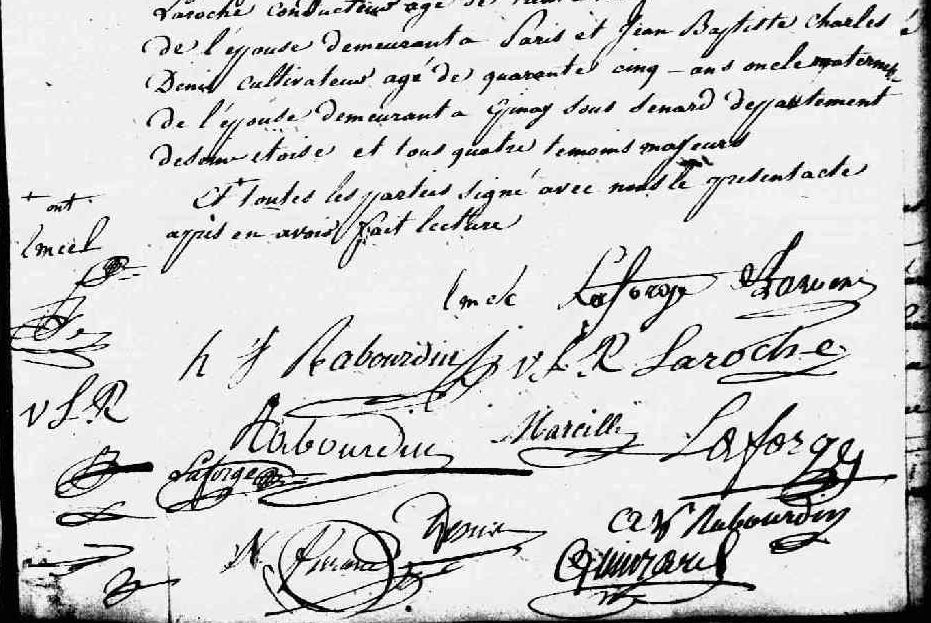 Laroche conducteur agé de
de l'épouse demeurant a Paris et Jean Baptiste Charles
Denis cultivateur agé de quarante cinq ans oncle maternel
de l'épouse demeurant a Epinay sous Senard departement
de seine etoise et tous quatre temoins majeurs
Et toutes les parties signé avec nous le present acte
apres en avoir fait lecture
+ ont
l m c l
l m c l Laforge
h f Rabourdin v L R Laroche
v L R
Rabourdin Marcille Laforge
Laforge
Denis Rabourdin